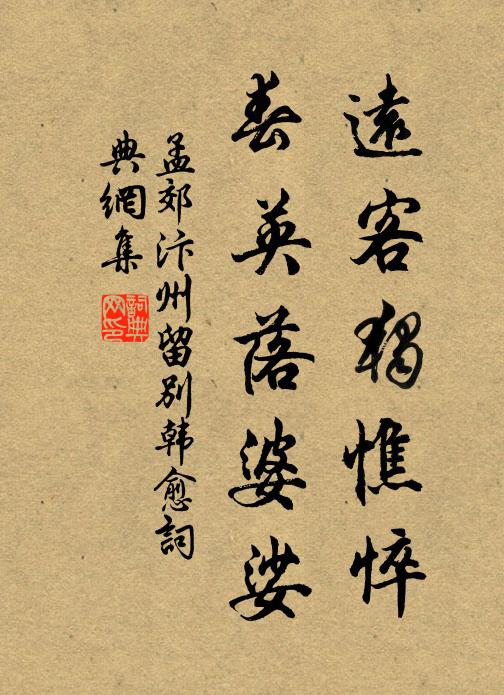 遠客獨憔悴
春英落婆娑
孟郊汴州留別韩愈詞
典網集
詞典
网印